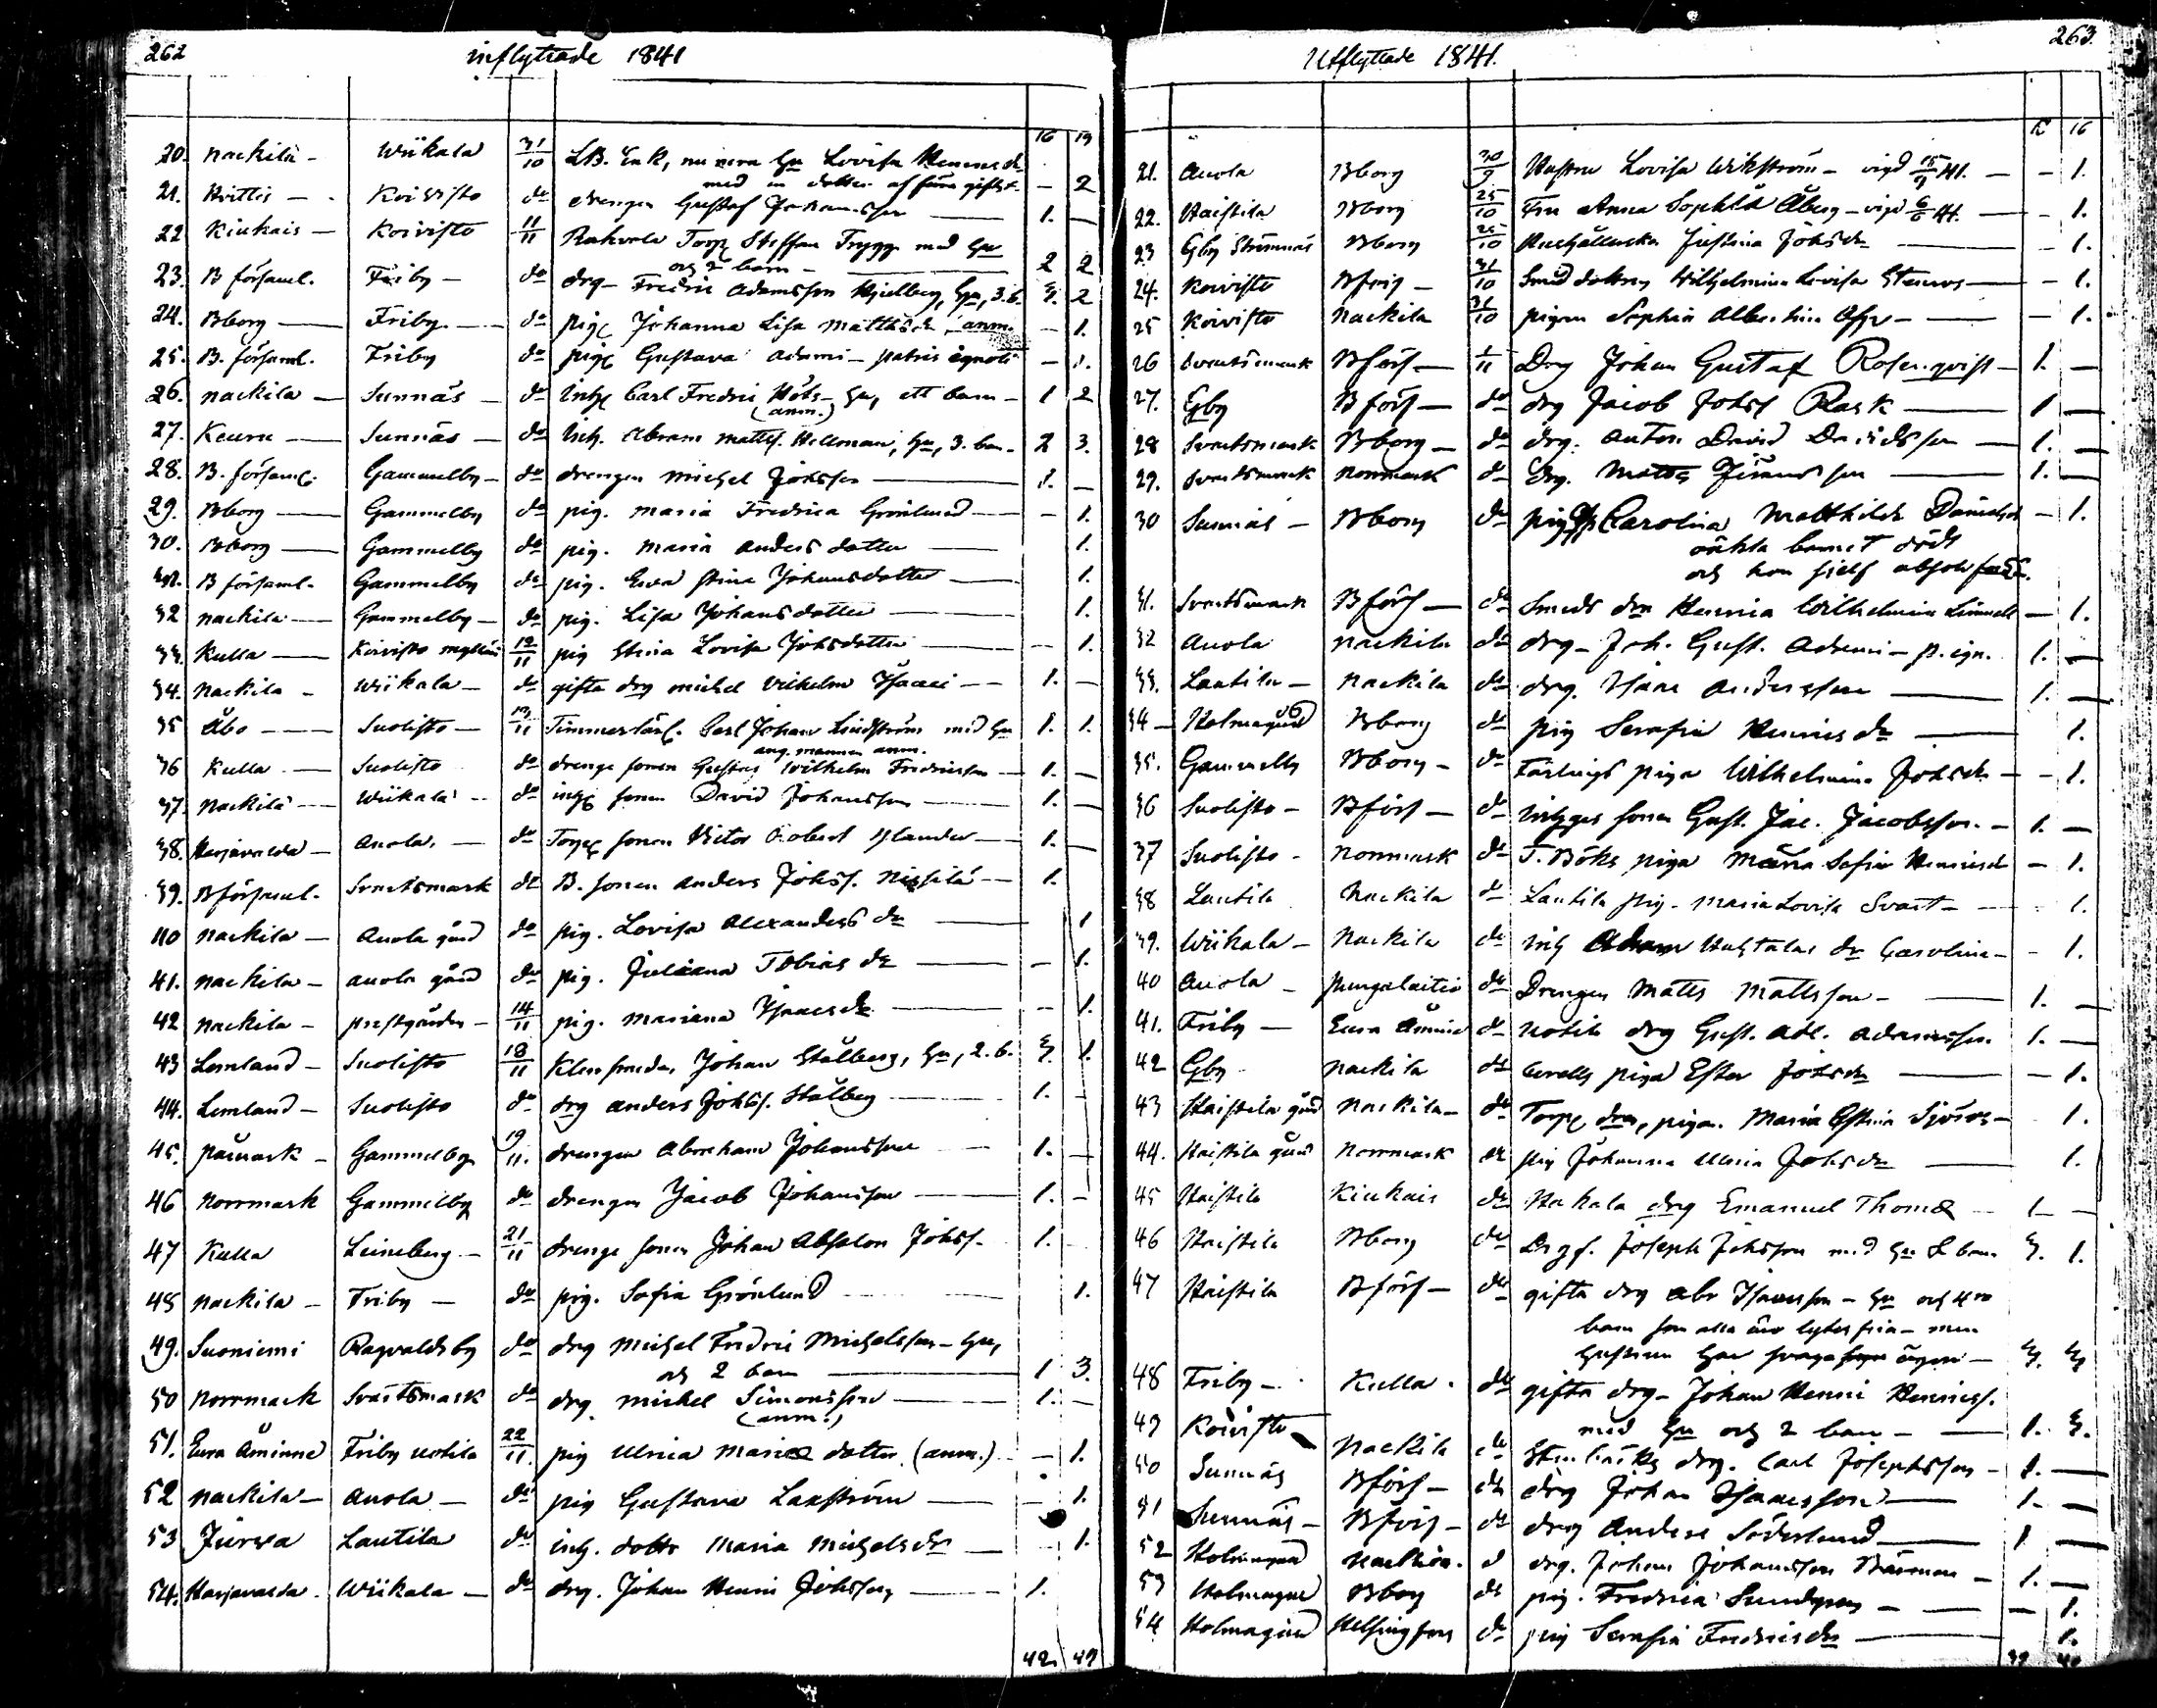 262
inflyttade 1841
16 19
20. nackila - Wiikala 31/10 LB. Enk, nu mera hu Lovisa Henricsdr
med en dotter af förra giftet - 2
21. Hvittis - Koivisto do drengen Gustaf Johansson 1. -
22 Kiukais - Koivisto 11/11 Torp Steffan Trygg med hu
och 2 barn - 2 2
23. B församl. Friby - do drg - Fredric Adamsson Hjellberg, hu, 3.b. 3. 2
24. Bborg - Friby - do pig Johanna Lisa Mattsdr anm. - 1.
25. B. församl. Friby do pig Gustava Adami - patris ignoti - 1.
26. nackila - Sunnäs - do inh Carl Fredric - hu, ett barn - 1 2
(anm.)
27. Keuru - Sunnäs - do inh. Abram Matts. Hellman, hu, 3. barn - 2 3.
28. B. församl. Gammelby - do drengen Michel Johsson 1. -
29. Bborg - Gammelby do pig. Maria Fredrica Grönlund - 1.
30. Bborg - Gammelby do pig. Maria Anders dotter 1.
31. B församl. Gammelby do pig. Eva Stina Johansdotter 1.
32 nackila - Gammelby - do pig. Lisa Johansdotter 1.
33. Kulla - Koivisto 12/11 pig Stina Lovisa Johsdotter - 1.
34. Nackila - Wiikala - do gifta drg Michel Vilhelm Isaaci - 1. -
35 Åbo - Suolisto - 11 Timmerkarl. Carl Johan Lindström med hu 1. 1.
ang. mannen anm.
36 Kulla - Suolisto do drenge sonen Gustav Wilhelm Fredricsson - 1. -
37. Nackila - Wiikala - do inh sonen David Johansson 1. -
38. Harjavalda - Anola - do Torp sonen Victor Robert 1. -
39. B församl. Svartsmark do B. sonen Anders Johss. Nissilä - 1.
40 nackila - Anola gård do pig. Lovisa Alexanders dr 1
41. nackila - Anola gård do pig. Juliana Tobias dr - 1.
42 nackila - prestgården - 14/11 pig. Mariana Isacsdr - 1.
43 Lemland - Suolisto 18/11 Johan Stålberg, hu, 2.b. 3. 1.
44. Lemland - Suolisto do drg Anders Johss. Stålberg 1. -
45. påmark - Gammelby 19/11. drengen Abraham Johansson 1. -
46 Norrmark Gammelby do drengen Jacob Johansson 1. -
47 Kulla Leineberg - 21/11 drenge sonen Johan Absalon Johss. 1.
48 nackila - Friby - do pig. Sofia Grönlund 1.
49. Suoniemi Ragvaldsby do drg Michel Fredric Michelsson - hu,
och 2 barn 1 3.
50 Norrmark Svartsmark do drg. Michel Simonsson 1. -
(anm.)
51. Eura Åminne Friby Uotila 22/11. pig Ulrica Mariæ dotter. (anm.) - 1.
52 nackila - Anola - do pig Gustava Laxström - 1.
53 Lautila do inh. dottr Maria Michelsdr - 1.
54. Harjavalda - Wiikala - do drg. Johan Henric Johsson 1.
42. 49
263.
Utflyttade 1841.
15 16
21. Anola Bborg 30/9 Lovisa Wikström - vigd 15/9 41. - - 1.
22. Haistila Bborg 25/10 Fru Anna Sophia Åberg - vigd 6/6 41. - 1.
23 Gby Strömnäs Bborg 25/10 Hushållerska Justina Johsdr - 1.
24. Koivisto Bförs - 31/10 Smed dottren Wilhelmina Lovisa - 1.
25 Koivisto nackila 31/10 pigan Sophia Albertina - 1.
26 Svartsmark Bförs - 1/11 Drg Johan Gustaf Rosenqvist - 1. -
27. Gby B förs - do drg Jacob Johss Rask 1 -
28 Svartsmark Bborg - do drg. Anton David Davidsson - 1. -
29. Svartsmark Norrmark do drg. Matts 1. -
30 Sunnäs - Bborg do pig Carolina Matthilda - 1.
oäkta barnet dödt
och hon sjelf
31. Svartsmark Bförs - do Smeds drn Henrica Wilhelmina - 1.
32 Anola nackila do drg - Joh. Gust. Adami - p. ign. 1. -
33. Lautila - nackila do drg. Isaac Andersson 1. -
34 - Holmagård Bborg do pig Serafia Henricsdr 1.
35. Gammelby Bborg - do piga Wilhelmina Johsdr - - 1.
36 Suolisto - Bförs - do inhyses sonen Gust. Jac. Jacobsson. - 1. -
37 Suolisto - Norrmark do T. Böks piga Maria Sofia Henricsd - 1.
38 Lautila Nackila do Lautila pig. Maria Lovisa Svart - 1.
39. Wiikala - Nackila do inh Adam dr Carolina - - 1.
40 Anola - pungalaitio do Drengen Matts Mattsson - 1. -
41. Friby - Eura Åminne do Uotila drg Gust. Adl. Adamsson 1. -
42 Gby nackila do piga Ester Johsdr - 1.
43 Haistila gård Nackila - do Torp drn, pigan. Maria Stina Sjöros - 1.
44. Haistila gård Norrmark do pig Johanna Ulrica Johsdr 1.
45 Haistila Kiukais do Hakala drg Emanuel Thomæ 1 -
46 Haistila Bborg do Joseph Johsson med hu & barn 3. 1.
47 Haistila Bförs - do gifta drg Abr Isacsson - hu och 4ra
barn som alla äro lytes fria - men
hustrun har svaga ögon - 3. 3
48 Friby - Kulla. do gifta drg - Johan Henric Henricss.
med hu och 2 barn - 1. 3.
49 Koivisto Nackila do drg. Carl Josephsson - 1. -
50 Sunnäs Bförs - do drg Johan Isaacsson 1. -
51 Sunnäs - Bförs - do drg Anders Söderlund 1 -
52 Holmagård Nackila. d drg. Johan Johansson - 1. -
53 Holmagård Bborg do pig. Fredrica Sundgren - - 1.
54 Holmagård Helsingfors do pig Serafia Fredricsdr 1.